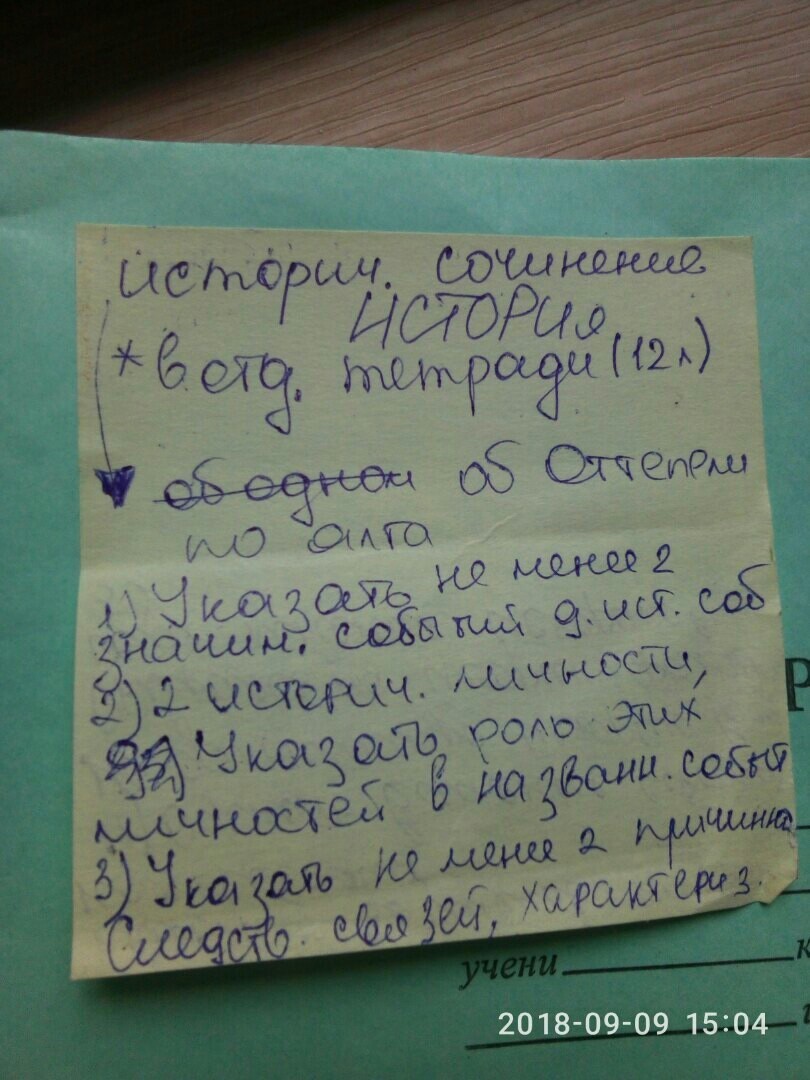 историч. сочинение
ИСТОРИЯ
* в отд. тетради (12 л)
об одной об Оттепели
по алго
1) Указать не менее 2
значим. событий д. ист. соб
2) 2 историч. личности,
Указать роль этих
личностей в названн. событ
3) Указать не менее 2 причинно
следств. связей, характериз.
учени
2018-09-09 15:04